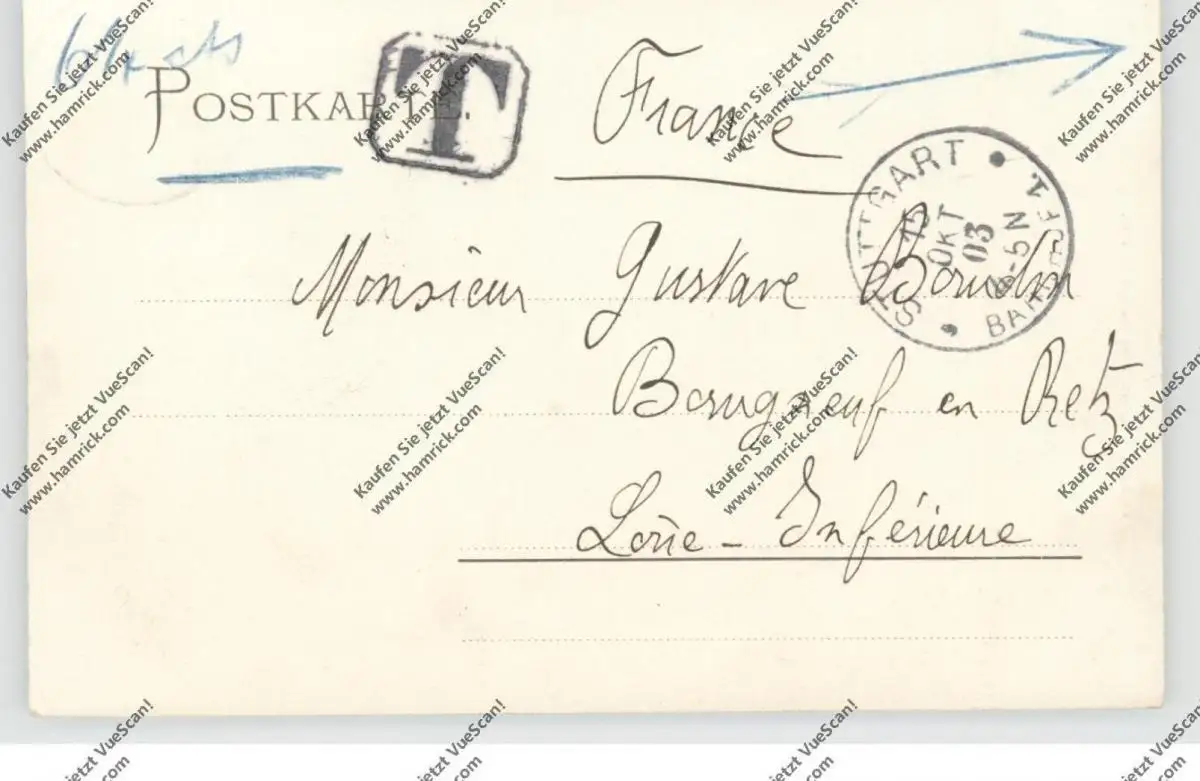 POSTKARTE.
T
France
STUTTGART
OKT
03
-5 N
Monsieur Gustave
Bourgneuf en Retz
Loire - Inférieure
Kaufen Sie jetzt VueScan!
www.hamrick.com